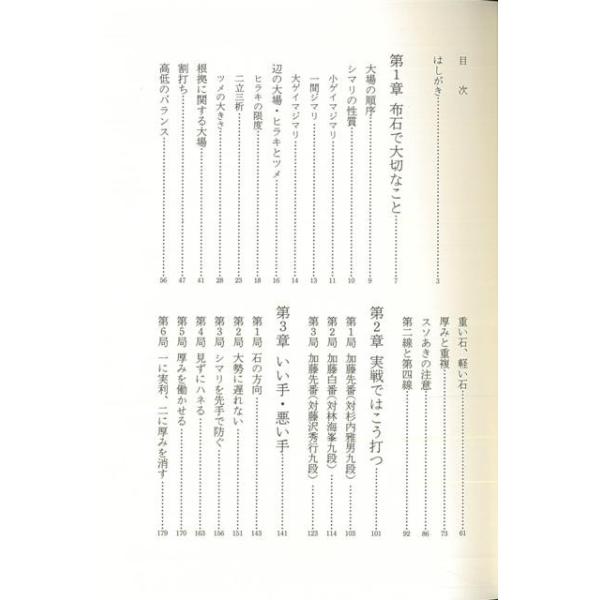 目次
はしがき……3
第1章 布石で大切なこと……7
大場の順序……9
シマリの性質……10
小ゲイマジマリ……11
一間ジマリ……13
大ゲイマジマリ……14
辺の大場・ヒラキとツメ……16
ヒラキの限度……18
二立三析……23
ツメの大きさ……28
根拠に関する大場……41
割打ち……47
高低のバランス……56
重い石、軽い石……61
厚みと重複……73
スソあきの注意……86
第二線と第四線……92
第2章 実戦ではこう打つ……101
第1局 加藤先番(対杉内雅男九段)……103
第2局 加藤白番(対林海峯九段)……114
第3局 加藤先番(対藤沢秀行九段)……123
第3章 いい手・悪い手……141
第1局 石の方向……143
第2局 大勢に遅れない……151
第3局 シマリを先手で防ぐ……156
第4局 見ずにハネる……163
第5局 厚みを働かせる……170
第6局 一に実利、二に厚みを消す……179